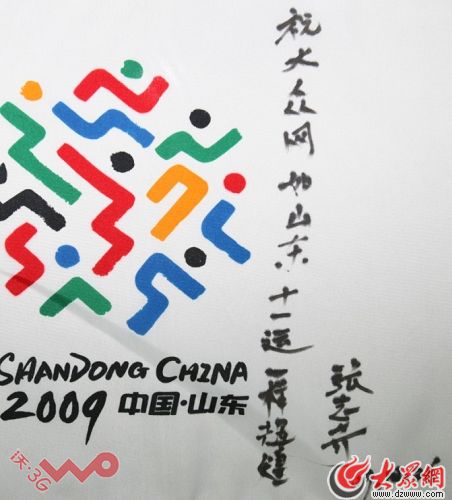 祝大众网如山东十一运一样辉煌
张志升
SHANDONG CHINA
2009 中国·山东
沃·3G
大众网
www.dzwww.com